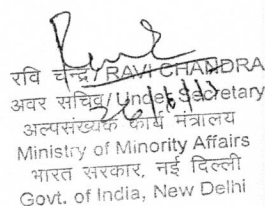 रवि चन्द्र/RAVI CHANDRA
अवर सचिव/Under Secretary
26/6/13
अल्पसंख्यक कार्य मंत्रालय
Ministry of Minority Affairs
भारत सरकार, नई दिल्ली
Govt. of India, New Delhi